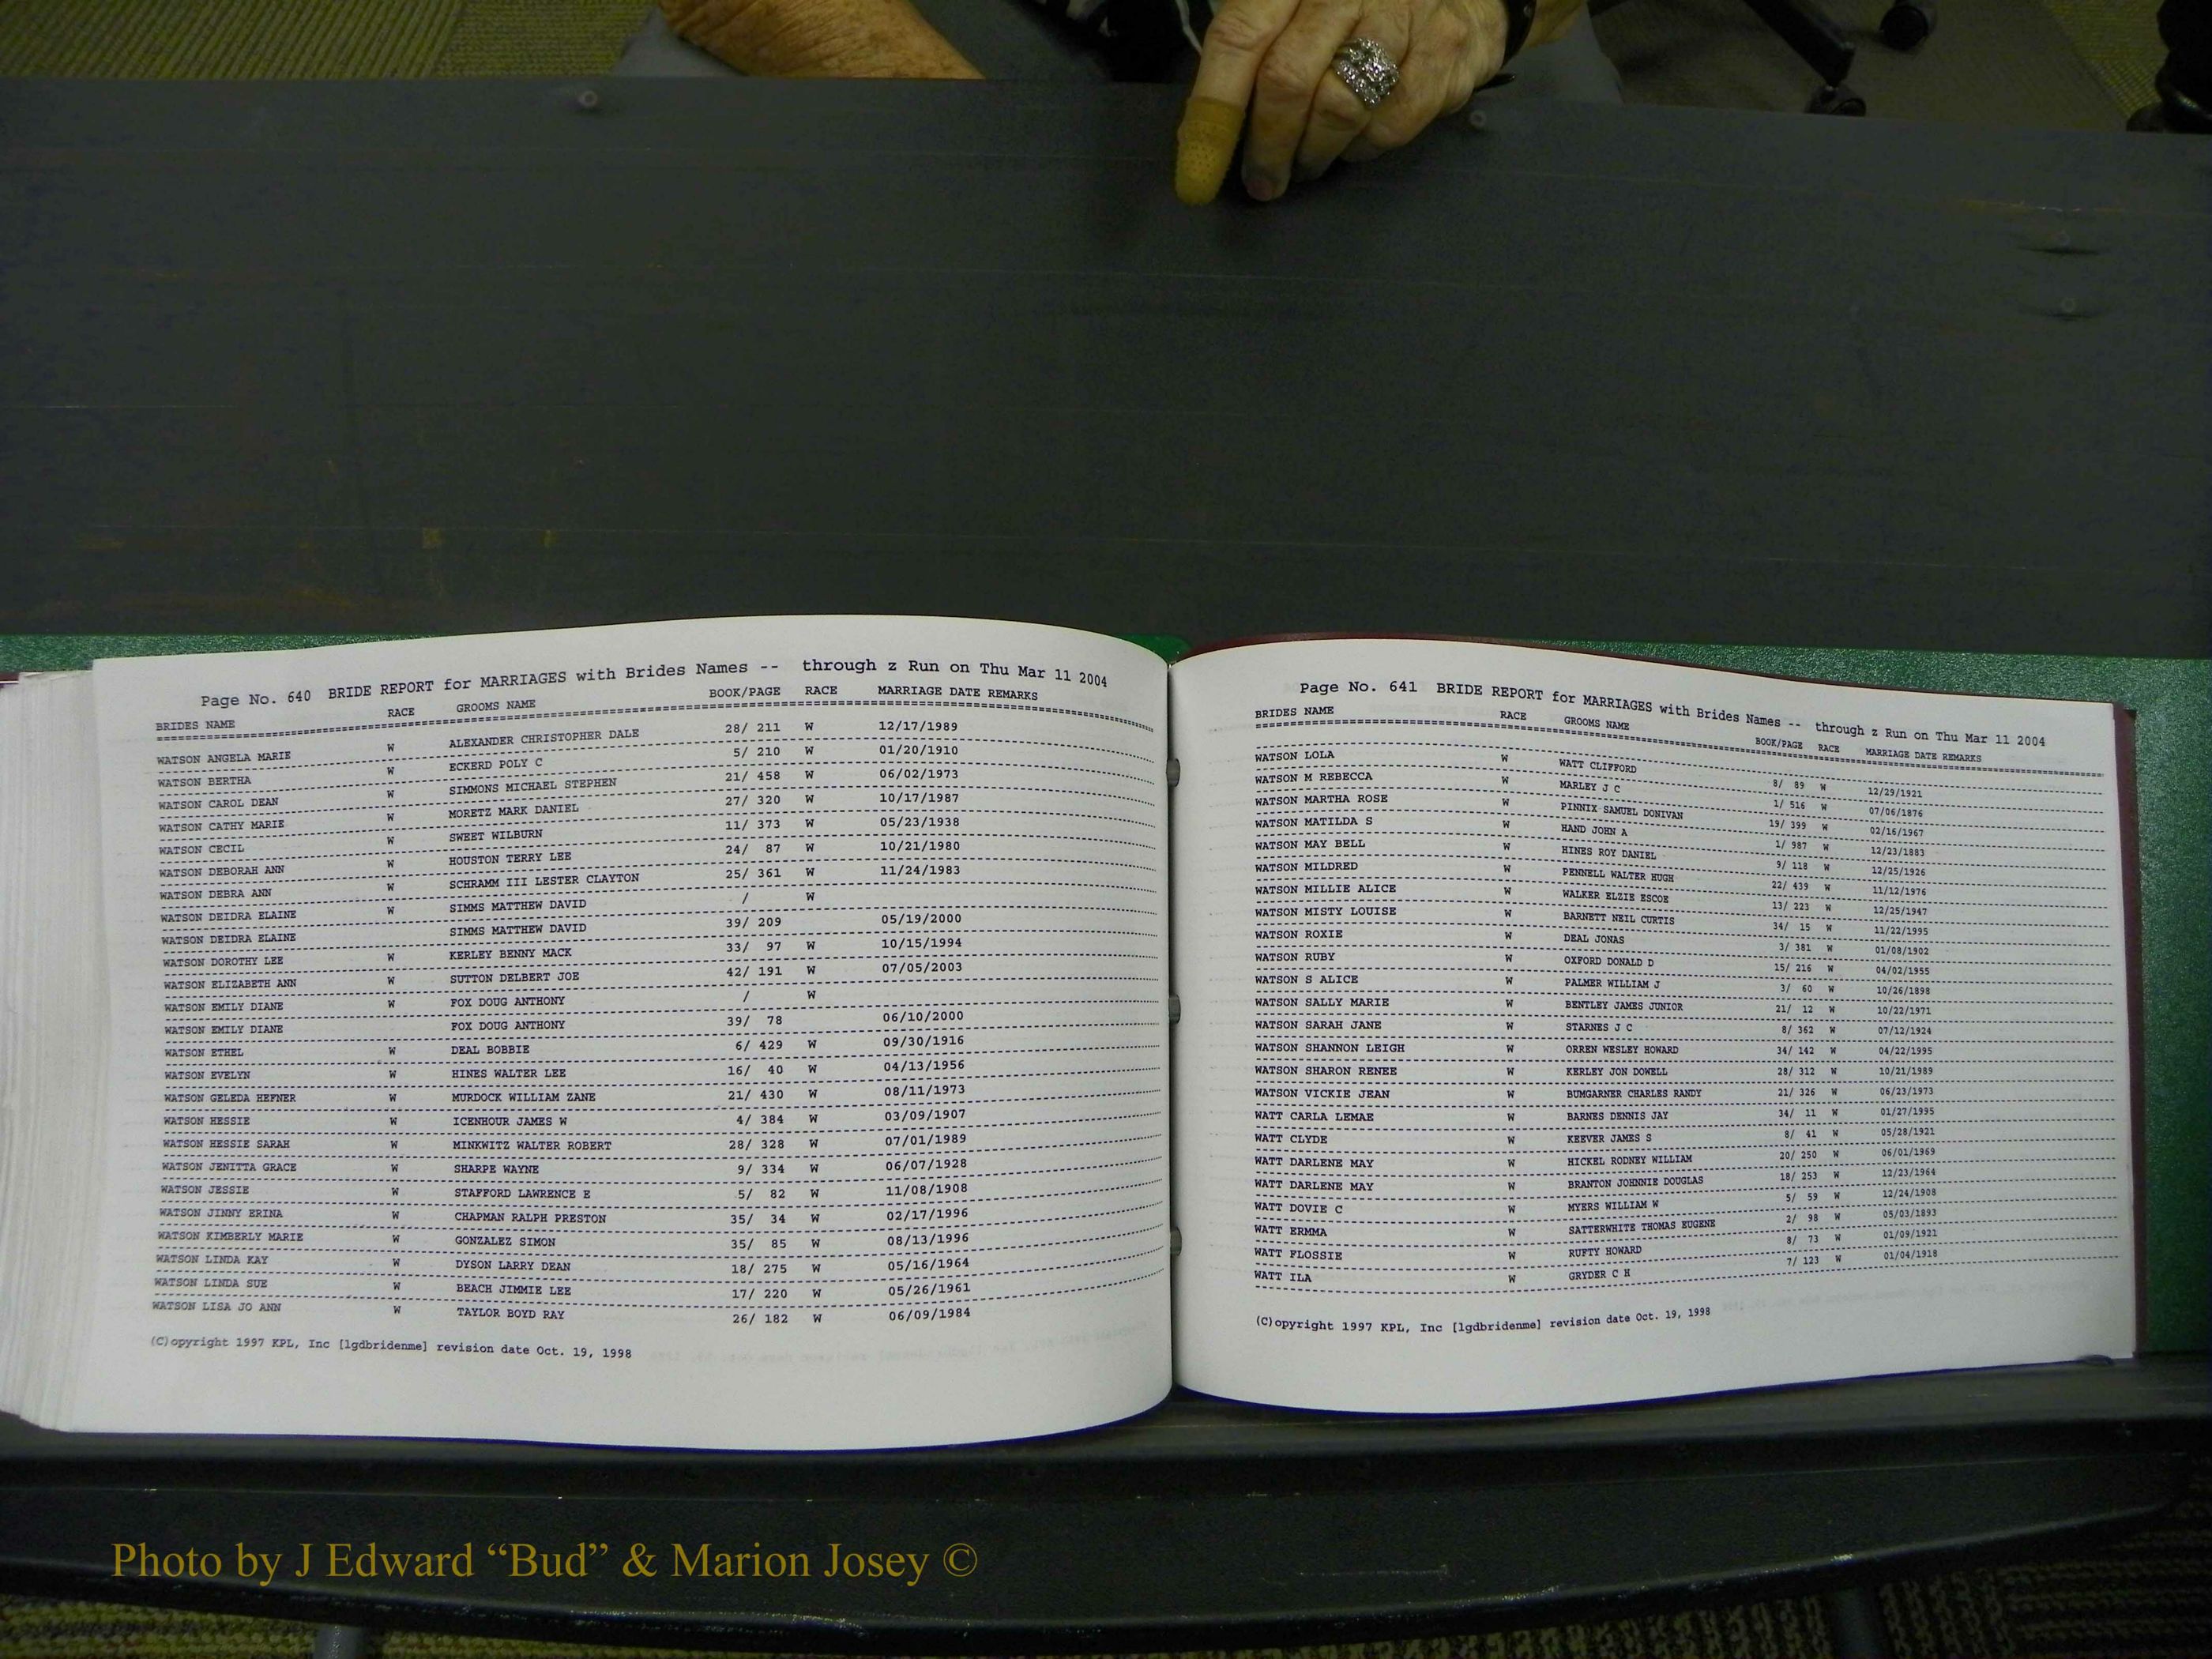 Page No. 640 BRIDE REPORT for MARRIAGES with Brides Names -- through z Run on Thu Mar 11 2004
BRIDES NAME RACE GROOMS NAME BOOK/PAGE RACE MARRIAGE DATE REMARKS
WATSON ANGELA MARIE W ALEXANDER CHRISTOPHER DALE 28/ 211 W 12/17/1989
WATSON BERTHA W ECKERD POLY C 5/ 210 W 01/20/1910
WATSON CAROL DEAN W SIMMONS MICHAEL STEPHEN 21/ 458 W 06/02/1973
WATSON CATHY MARIE W MORETZ MARK DANIEL 27/ 320 W 10/17/1987
WATSON CECIL W SWEET WILBURN 11/ 373 W 05/23/1938
WATSON DEBORAH ANN W HOUSTON TERRY LEE 24/ 87 W 10/21/1980
WATSON DEBRA ANN W SCHRAMM III LESTER CLAYTON 25/ 361 W 11/24/1983
WATSON DEIDRA ELAINE W SIMMS MATTHEW DAVID / W
WATSON DEIDRA ELAINE SIMMS MATTHEW DAVID 39/ 209 05/19/2000
WATSON DOROTHY LEE W KERLEY BENNY MACK 33/ 97 W 10/15/1994
WATSON ELIZABETH ANN W SUTTON DELBERT JOE 42/ 191 W 07/05/2003
WATSON EMILY DIANE W FOX DOUG ANTHONY / W
WATSON EMILY DIANE FOX DOUG ANTHONY 39/ 78 06/10/2000
WATSON ETHEL W DEAL BOBBIE 6/ 429 W 09/30/1916
WATSON EVELYN W HINES WALTER LEE 16/ 40 W 04/13/1956
WATSON GELEDA HEFNER W MURDOCK WILLIAM ZANE 21/ 430 W 08/11/1973
WATSON HESSIE W ICENHOUR JAMES W 4/ 384 W 03/09/1907
WATSON HESSIE SARAH W MINKWITZ WALTER ROBERT 28/ 328 W 07/01/1989
WATSON JENITTA GRACE W SHARPE WAYNE 9/ 334 W 06/07/1928
WATSON JESSIE W STAFFORD LAWRENCE E 5/ 82 W 11/08/1908
WATSON JINNY ERINA W CHAPMAN RALPH PRESTON 35/ 34 W 02/17/1996
WATSON KIMBERLY MARIE W GONZALEZ SIMON 35/ 85 W 08/13/1996
WATSON LINDA KAY W DYSON LARRY DEAN 18/ 275 W 05/16/1964
WATSON LINDA SUE W BEACH JIMMIE LEE 17/ 220 W 05/26/1961
WATSON LISA JO ANN W TAYLOR BOYD RAY 26/ 182 W 06/09/1984
(C)opyright 1997 KPL, Inc [lgdbridenme] revision date Oct. 19, 1998
Page No. 641 BRIDE REPORT for MARRIAGES with Brides Names -- through z Run on Thu Mar 11 2004
BRIDES NAME RACE GROOMS NAME BOOK/PAGE RACE MARRIAGE DATE REMARKS
WATSON LOLA W WATT CLIFFORD 8/ 89 W 12/29/1921
WATSON M REBECCA W MARLEY J C 1/ 516 W 07/06/1876
WATSON MARTHA ROSE W PINNIX SAMUEL DONIVAN 19/ 399 W 02/16/1967
WATSON MATILDA S W HAND JOHN A 1/ 987 W 12/23/1883
WATSON MAY BELL W HINES ROY DANIEL 9/ 118 W 12/25/1926
WATSON MILDRED W PENNELL WALTER HUGH 22/ 439 W 11/12/1976
WATSON MILLIE ALICE W WALKER ELZIE ESCOE 13/ 223 W 12/25/1947
WATSON MISTY LOUISE W BARNETT NEIL CURTIS 34/ 15 W 11/22/1995
WATSON ROXIE W DEAL JONAS 3/ 381 W 01/08/1902
WATSON RUBY W OXFORD DONALD D 15/ 216 W 04/02/1955
WATSON S ALICE W PALMER WILLIAM J 3/ 60 W 10/26/1898
WATSON SALLY MARIE W BENTLEY JAMES JUNIOR 21/ 12 W 10/22/1971
WATSON SARAH JANE W STARNES J C 8/ 362 W 07/12/1924
WATSON SHANNON LEIGH W ORREN WESLEY HOWARD 34/ 142 W 04/22/1995
WATSON SHARON RENEE W KERLEY JON DOWELL 28/ 312 W 10/21/1989
WATSON VICKIE JEAN W BUMGARNER CHARLES RANDY 21/ 326 W 06/23/1973
WATT CARLA LEMAE W BARNES DENNIS JAY 34/ 11 W 01/27/1995
WATT CLYDE W KEEVER JAMES S 8/ 41 W 05/28/1921
WATT DARLENE MAY W HICKEL RODNEY WILLIAM 20/ 250 W 06/01/1969
WATT DARLENE MAY W BRANTON JOHNNIE DOUGLAS 18/ 253 W 12/23/1964
WATT DOVIE C W MYERS WILLIAM W 5/ 59 W 12/24/1908
WATT ERMMA W SATTERWHITE THOMAS EUGENE 2/ 98 W 05/03/1893
WATT FLOSSIE W RUFTY HOWARD 8/ 73 W 01/09/1921
WATT ILA W GRYDER C H 7/ 123 W 01/04/1918
(C)opyright 1997 KPL, Inc [lgdbridenme] revision date Oct. 19, 1998
Photo by J Edward “Bud” & Marion Josey ©